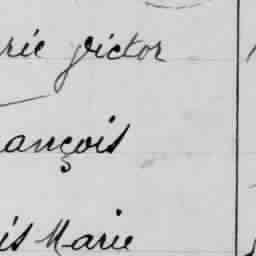 rie Victor
ançois
is Marie